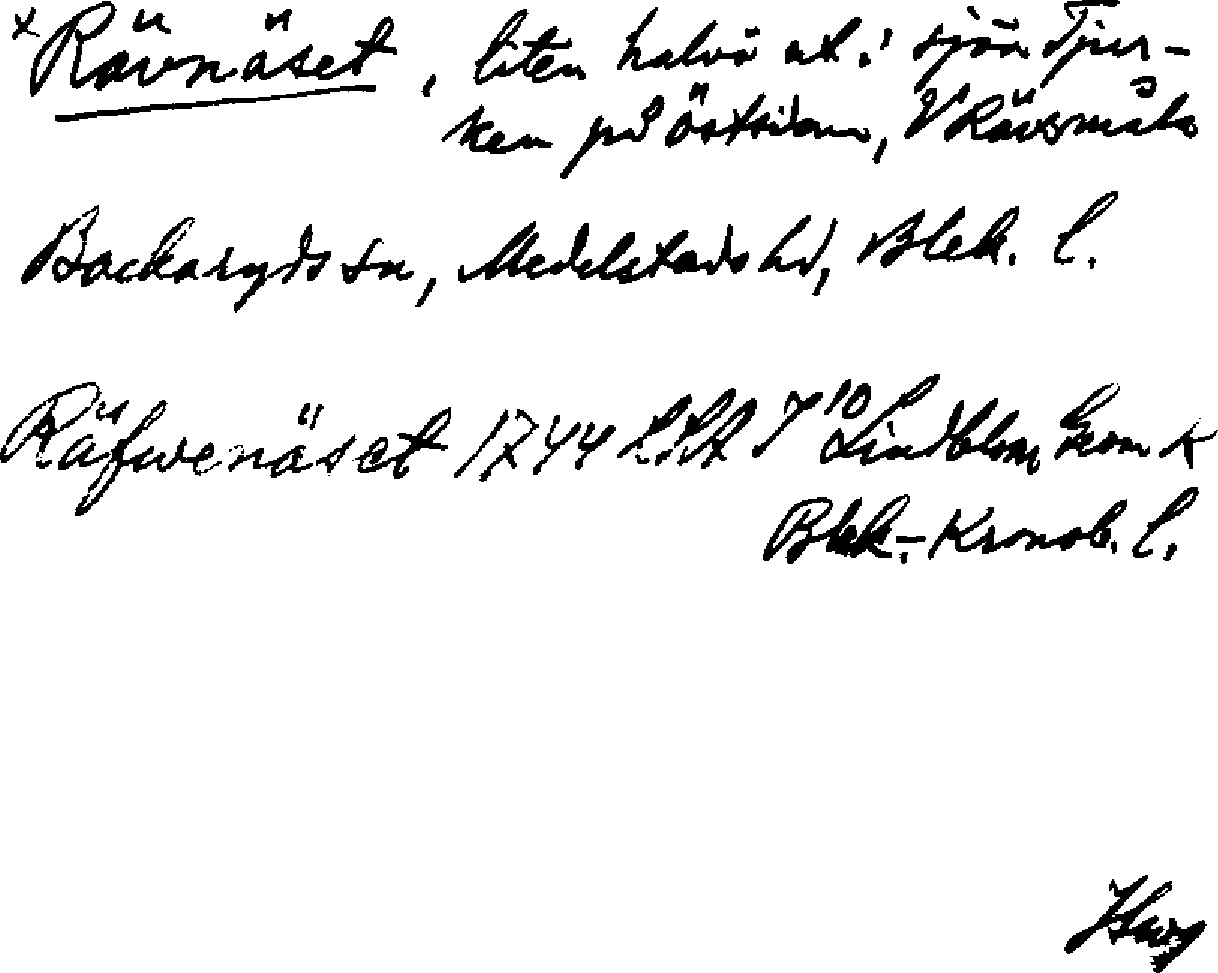 x Rävnäset, liten halvö ut i sjön Tjur-
ken på östsidan, V Rävsmåla
Backaryds sn, Medelstads hd, Blek. l.
Räfwenäset 1744 LSA J¹⁰ Lindblom Geom K
Blek.-Kronob. l.